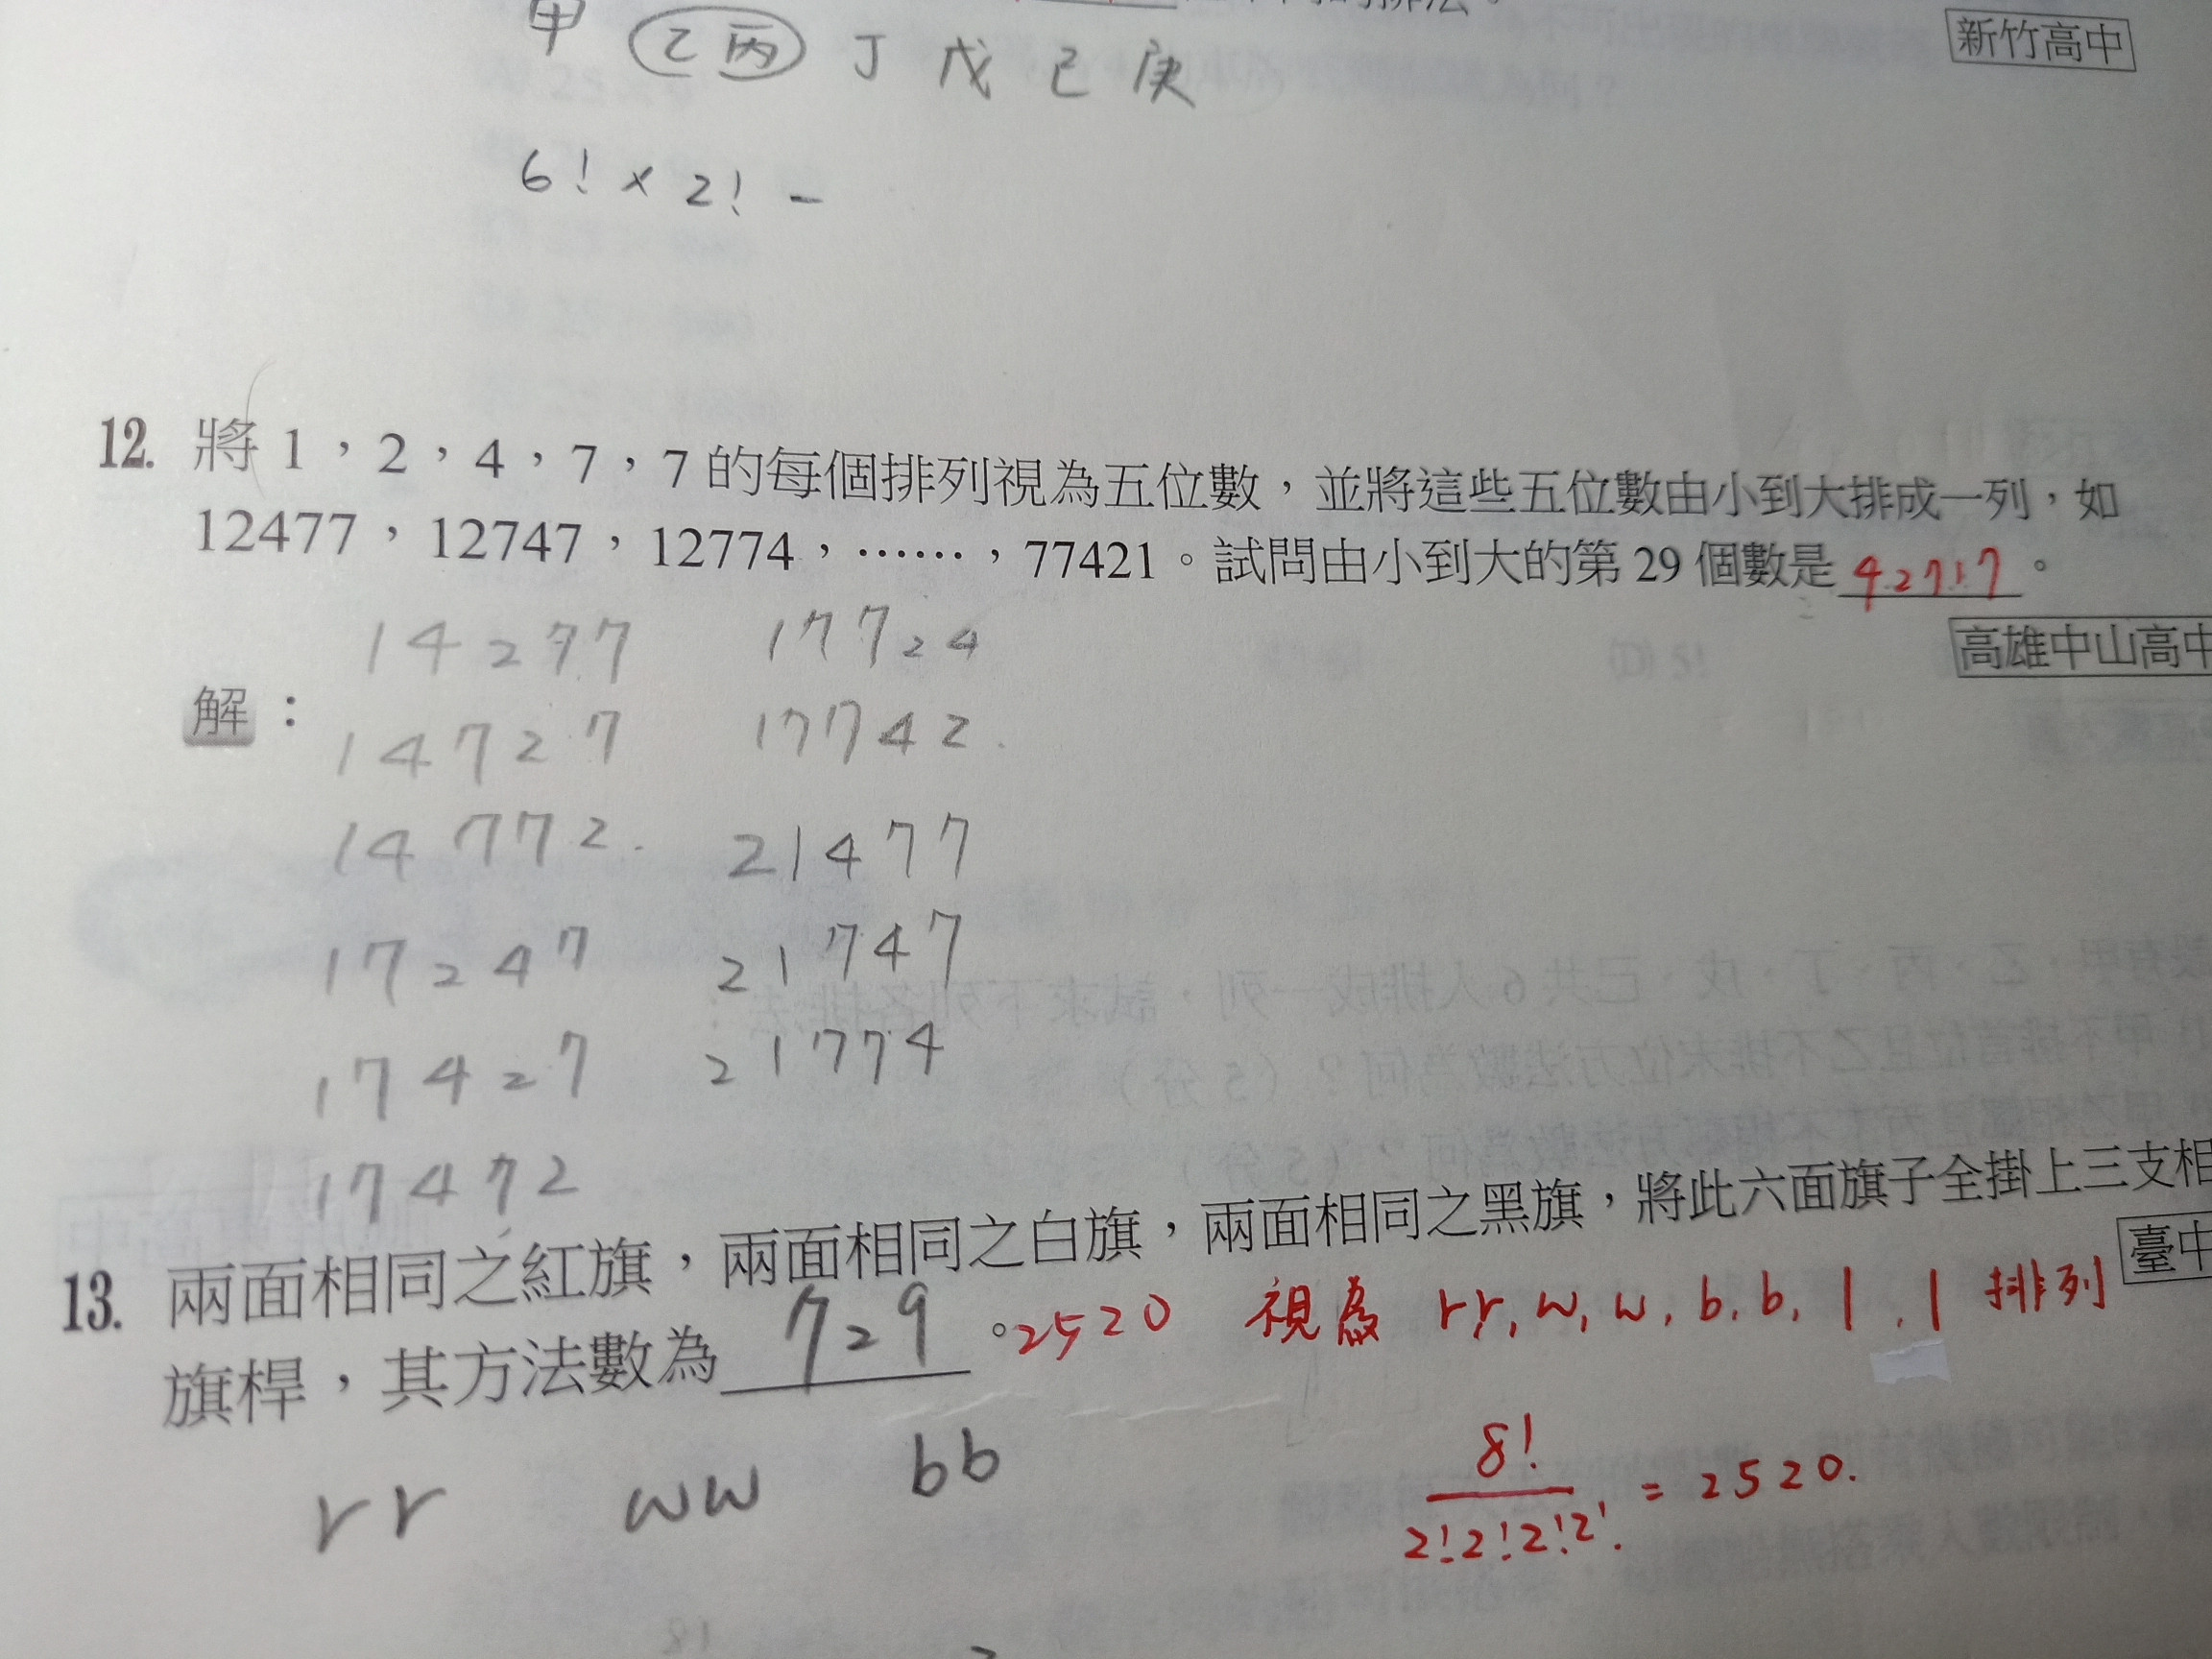 的排法。
新竹高中
甲 乙丙 丁 戊 己 庚
6! × 2! -
12. 將 1，2，4，7，7 的每個排列視為五位數，並將這些五位數由小到大排成一列，如
12477，12747，12774，……，77421。試問由小到大的第 29 個數是 42717 。
高雄中山高中
解：
14277 17724
14727 17742.
14772. 21477
17247 21747
17427 21774
17472
13. 兩面相同之紅旗，兩面相同之白旗，兩面相同之黑旗，將此六面旗子全掛上三支相
臺中
旗桿，其方法數為 729 。2520 視為 r,r,w,w,b,b,|,| 排列
rr ww bb
8!
2!2!2!2! = 2520.